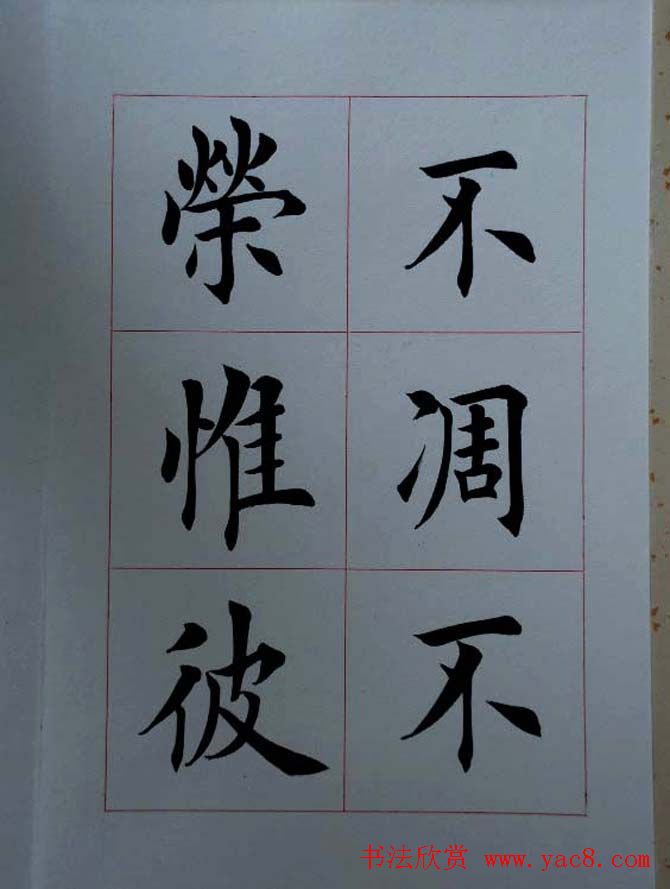 不凋不
榮惟彼
书法欣赏 www.yac8.com